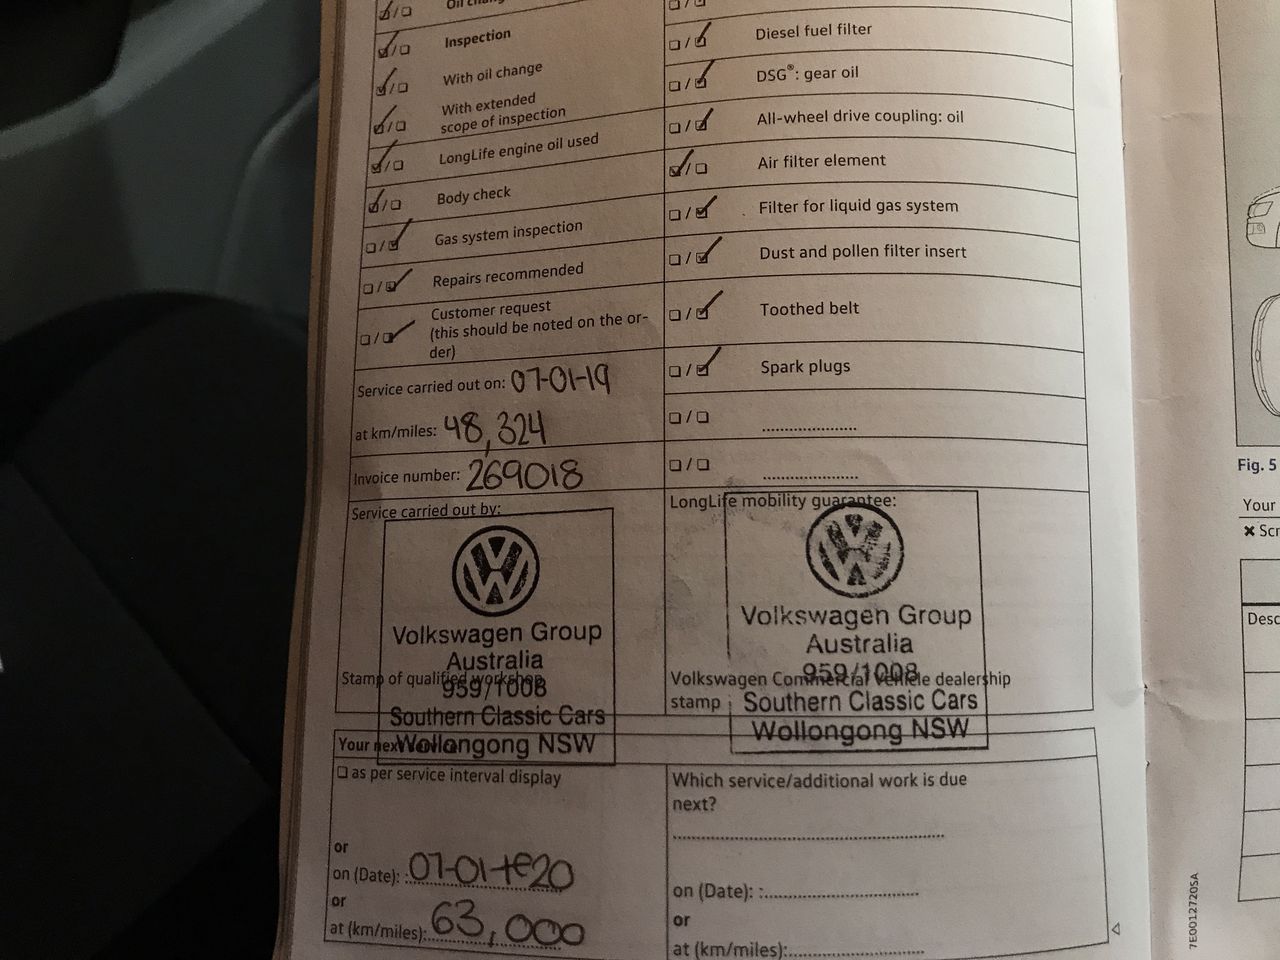 Inspection
With oil change
With extended
scope of inspection
LongLife engine oil used
Body check
Gas system inspection
Repairs recommended
Customer request
(this should be noted on the or-
der)
Service carried out on: 07-01-19
at km/miles: 48,324
Invoice number: 269018
Service carried out by:
Volkswagen Group
Australia
Stamp of qualified workshop
959/1008
Southern Classic Cars
Wollongong NSW
Diesel fuel filter
DSG®: gear oil
All-wheel drive coupling: oil
Air filter element
Filter for liquid gas system
Dust and pollen filter insert
Toothed belt
Spark plugs
LongLife mobility guarantee:
Volkswagen Group
Australia
959/1008
Volkswagen Commercial Vehicle dealership
stamp
Southern Classic Cars
Wollongong NSW
Your next
as per service interval display
or
on (Date): 07-01-20
or
at (km/miles): 63,000
Which service/additional work is due
next?
on (Date):
or
at (km/miles):
7E0012720SA
Fig. 5
Your
Scr
Desc